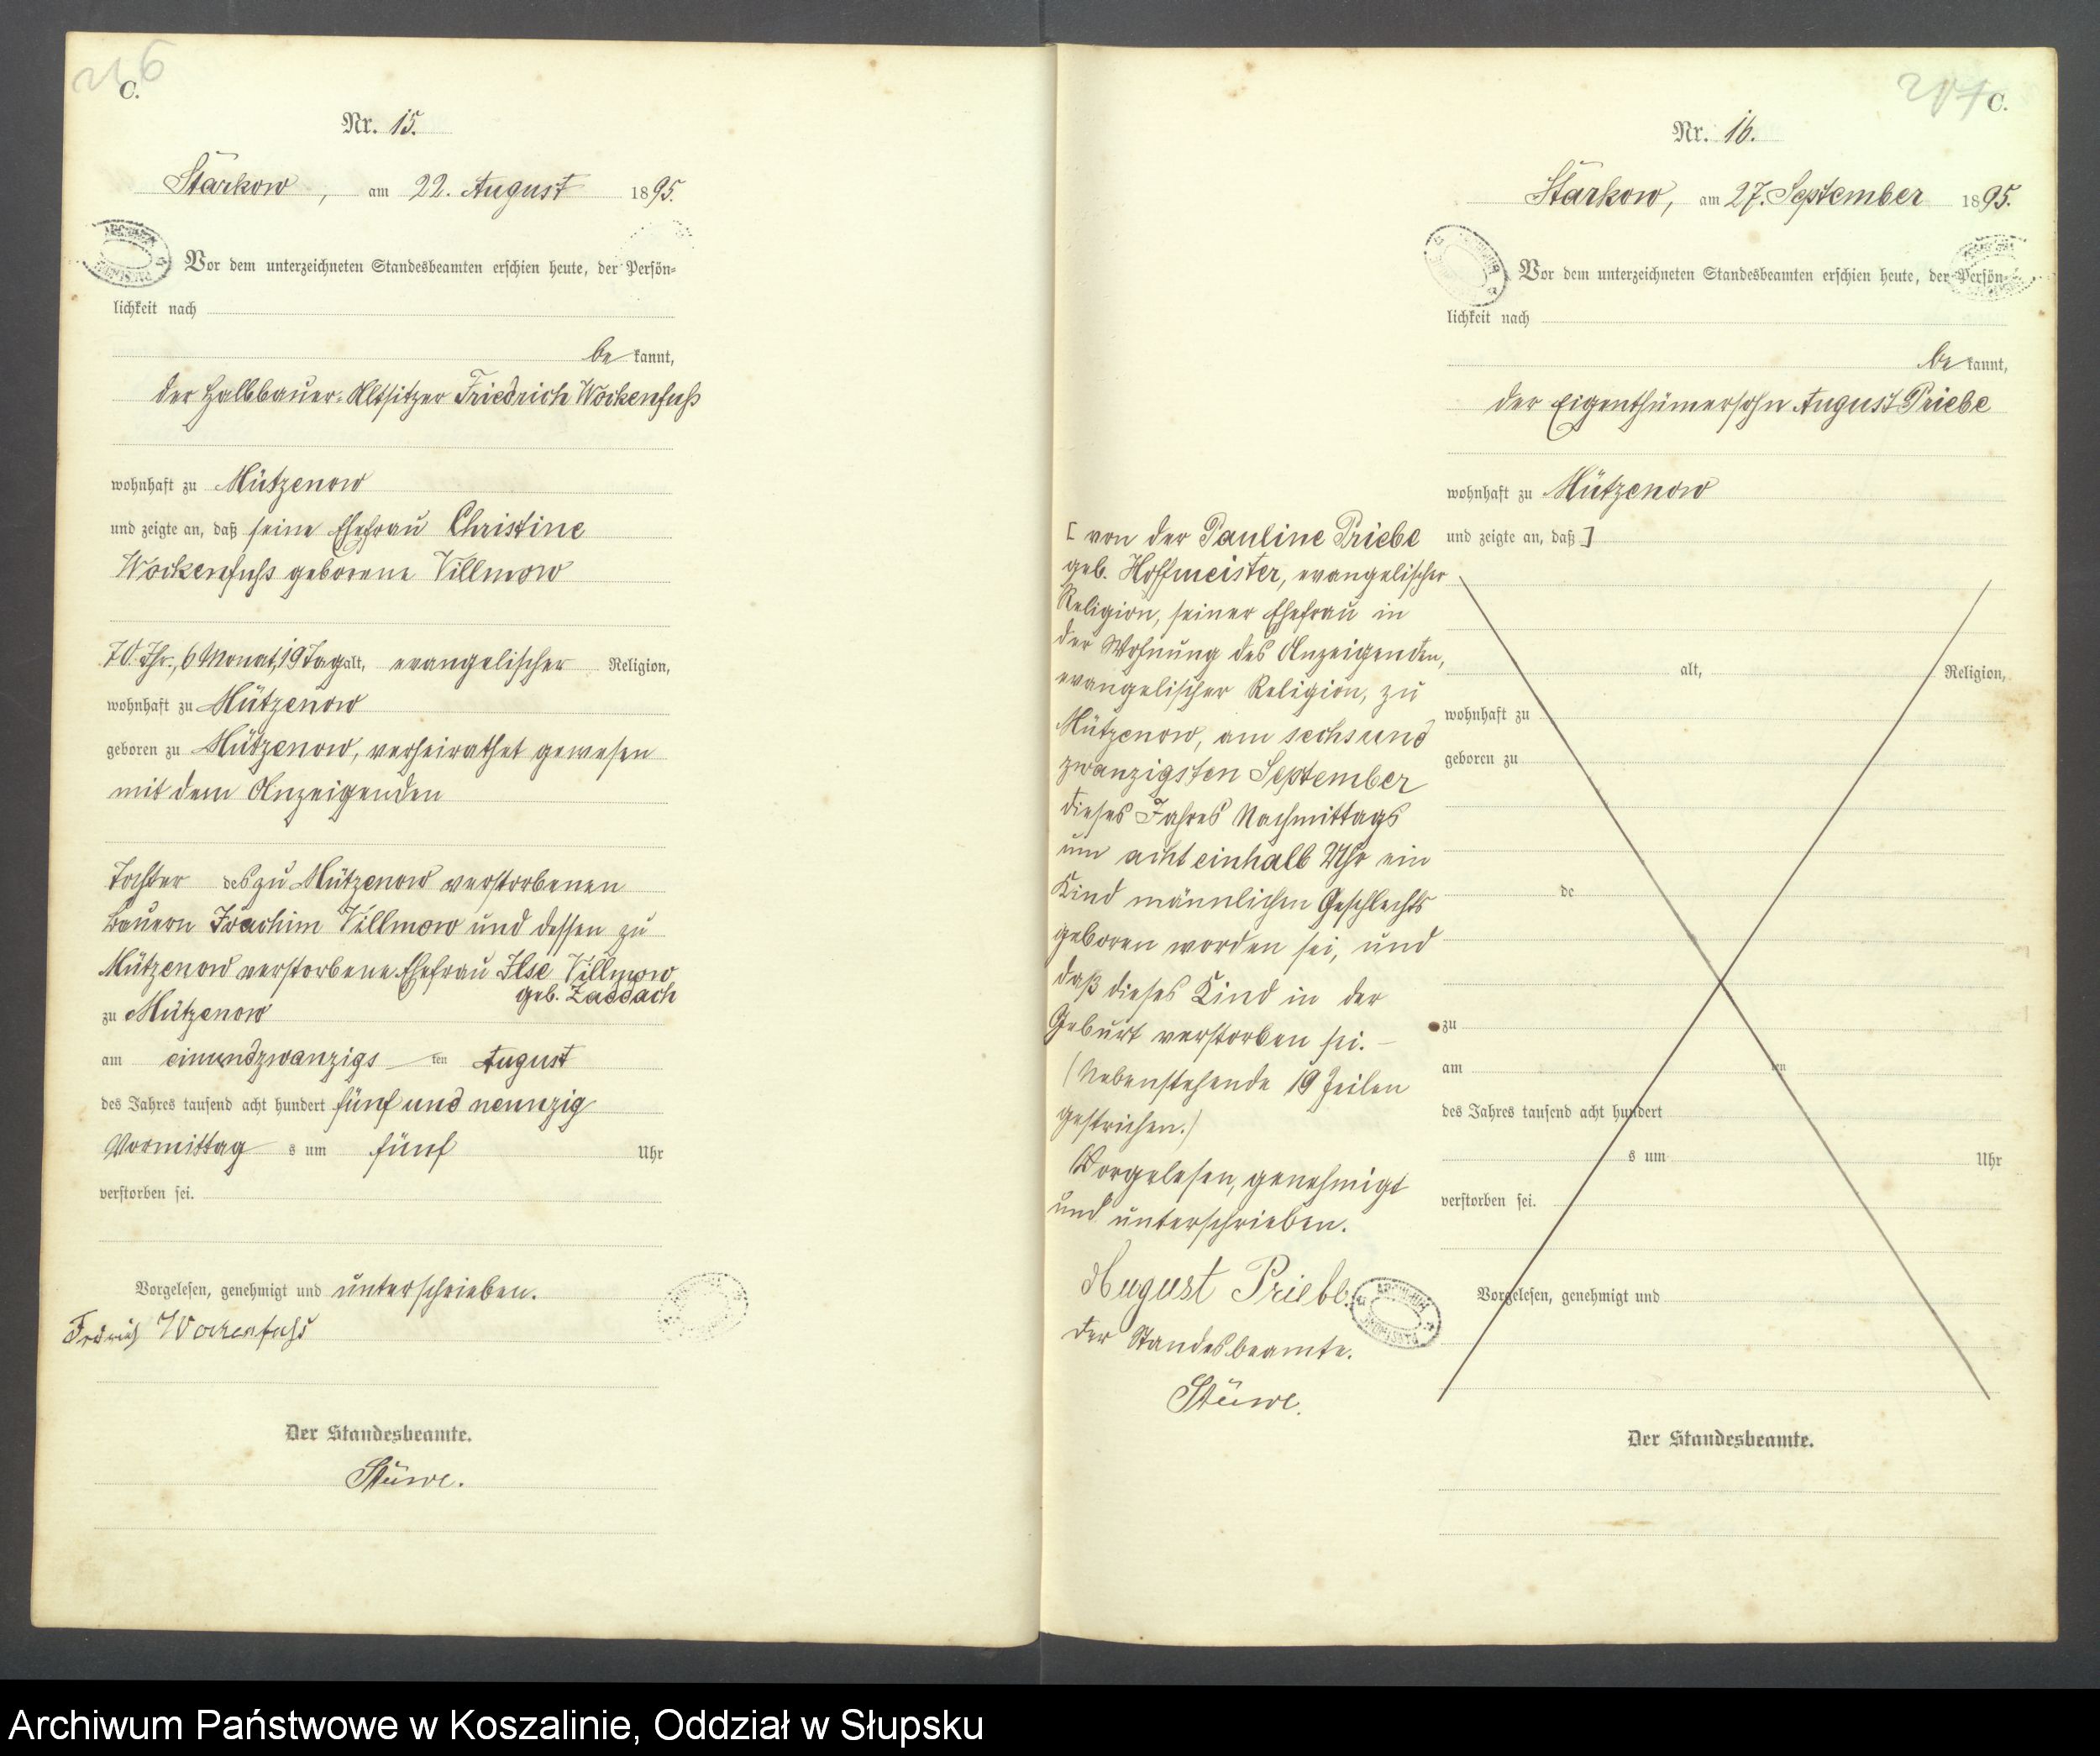 C.
Nr. 15.
Starkow, am 22. August 1895.
Vor dem unterzeichneten Standesbeamten erschien heute, der Persön=
lichkeit nach
be kannt,
der Halbbauer-Altsitzer Friedrich Wockenfuß
wohnhaft zu Mützenow
und zeigte an, daß seine Ehefrau Christine
Wockenfuß geborene Villmow
70 Jhr., 6 Monat, 19 Tag alt, evangelischer Religion,
wohnhaft zu Mützenow
geboren zu Mützenow, verheirathet gewesen
mit dem Anzeigenden
Tochter des zu Mützenow verstorbenen
Bauern Joachim Villmow und dessen zu
Mützenow verstorbene Ehefrau Ilse Villmow
geb. Zaddach
zu Mützenow
am einundzwanzigs ten August
des Jahres tausend acht hundert fünf und neunzig
Vormittag s um fünf Uhr
verstorben sei.
Vorgelesen, genehmigt und unterschrieben.
Wockenfuß
Der Standesbeamte.
Stüwe.
C.
Nr. 16.
Starkow, am 27. September 1895.
Vor dem unterzeichneten Standesbeamten erschien heute, der Persön=
lichkeit nach
be kannt,
der Eigenthümersohn August Priebe
wohnhaft zu Mützenow
und zeigte an, daß ]
[ von der Pauline Priebe
geb. Hoffmeister, evangelischer
Religion, seiner Ehefrau in
der Wohnung des Anzeigenden,
evangelischer Religion, zu
Mützenow, am sechsund
zwanzigsten September
dieses Jahres Nachmittags
um acht einhalb Uhr ein
Kind männlichen Geschlechts
geboren worden sei, und
daß dieses Kind in der
Geburt verstorben sei. –
(Nebenstehende 19 Zeilen
gestrichen.)
Vorgelesen, genehmigt
und unterschrieben.
August Priebe
der Standesbeamte.
Stüwe.
alt, Religion,
wohnhaft zu
geboren zu
de
zu
am ten
des Jahres tausend acht hundert
s um Uhr
verstorben sei.
Vorgelesen, genehmigt und
Der Standesbeamte.
Archiwum Państwowe w Koszalinie, Oddział w Słupsku